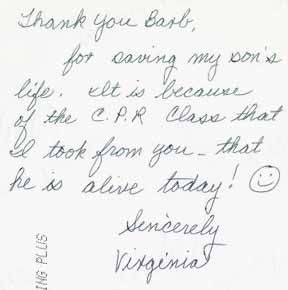 Thank You Barb,
for saving my son's
life. It is because
of the C.P.R Class that
I took from you - that
he is alive today!
Sincerely
Virginia
ING PLUS